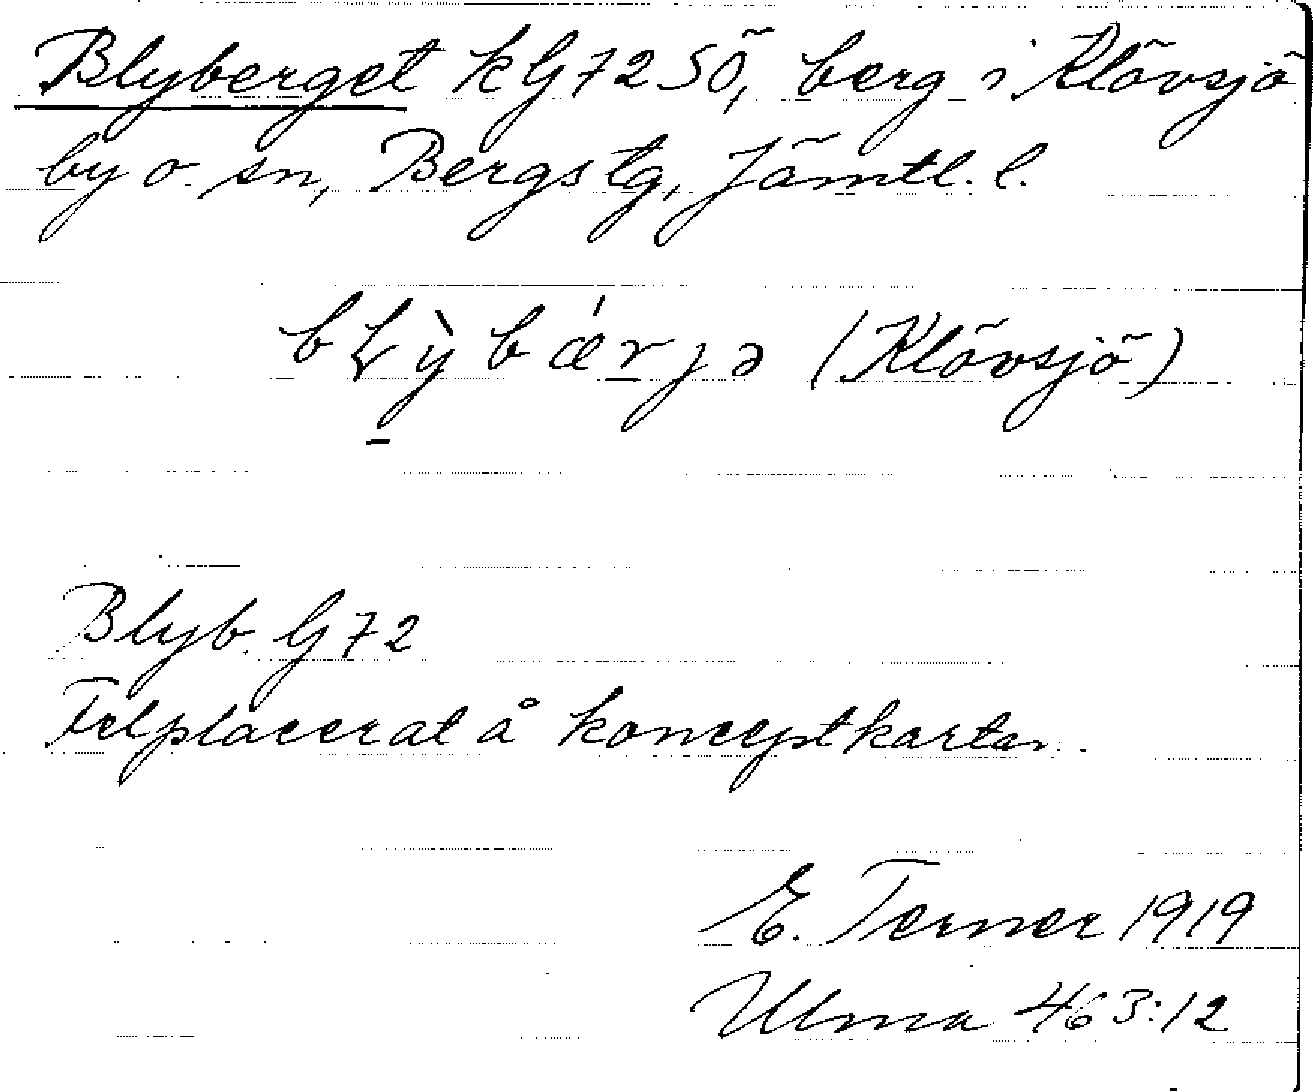 Blyberget kG72SÖ, berg i Klövsjö
by o. sn, Bergs tg, Jämtl. l.
bḷỳbǽrjə (Klövsjö)
Blyb. G72
Felplacerat å konceptkartan.
E. Terner 1919
Ulma 463:12